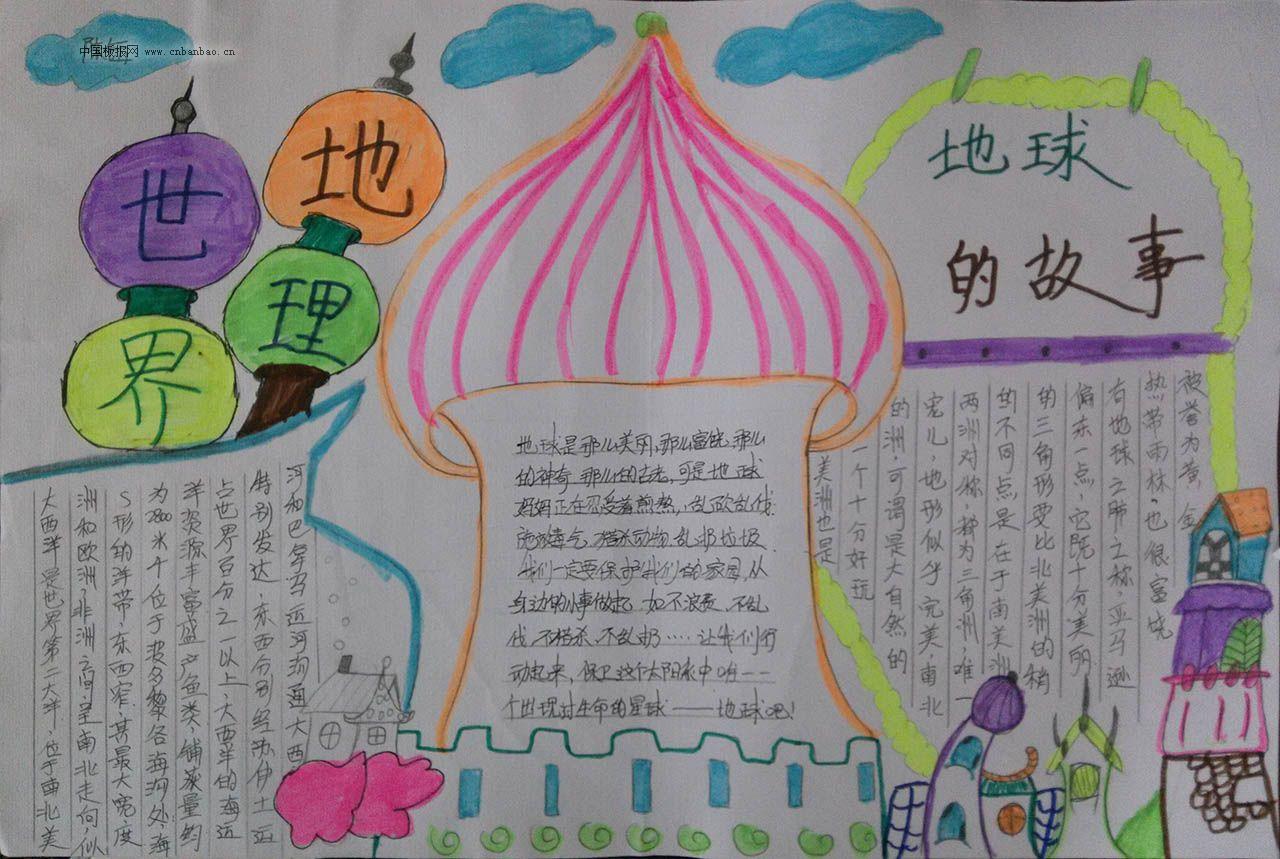 中国板报网 www.cnbanbao.cn
世界
地理
地球
的故事
大西洋是世界第二大洋,位于南北美
洲和欧洲、非洲之间,呈南北走向,似
S形的洋带,东西窄,其最大宽度
为2800米,位于波多黎各海沟处,海
洋资源丰富,盛产鱼类,铺获量约
占世界百分之一以上,大西洋的海运
特别发达,东西分别经苏伊士运
河和巴拿马运河沟通大西
地球是那么美丽,那么富饶,那么
的神奇,那么的古老,可是地球
妈妈正在忍受着煎熬,乱砍乱伐
毒气,猎杀动物,乱扔垃圾
我们一定要保护我们的家园,从
身边的小事做起,如不浪费,不乱
伐,不猎杀,不乱扔……让我们行
动起来,保卫这个太阳系中唯一一
个出现过生命的星球——地球吧!
美洲也是
一个十分好玩
的洲,可谓是大自然的
宠儿,地形似乎完美南北
两洲对称,称为三角洲,唯一
的不同点是在于南美洲
的三角形要比北美洲的稍
偏东一点,它既十分美丽
有地球之肺之称,亚马逊
热带雨林,也很富饶
被誉为黄金